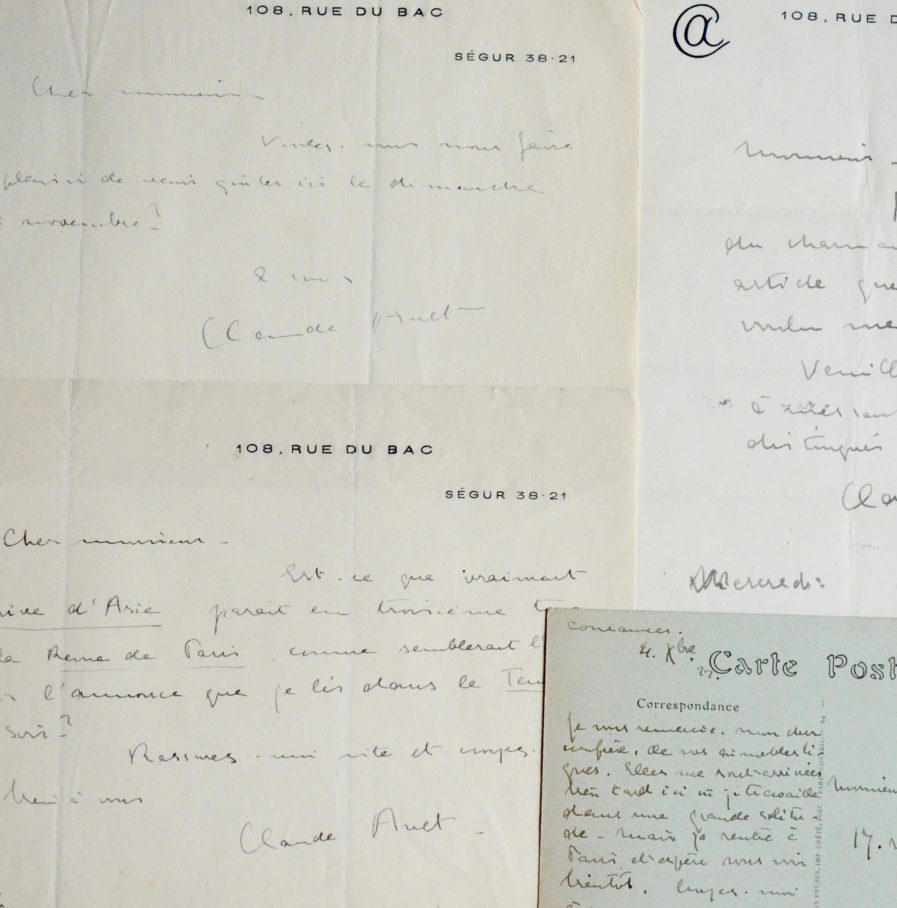 108, RUE DU BAC
SÉGUR 38-21
Cher monsieur
Voulez-vous nous faire
plaisir de venir goûter ici le dimanche
novembre?
à vous
Claude Anet
@ 108, RUE D
Monsieur
du charma
article que
voulu me
Veuill
à
distingués
Cla
Mercredi
108, RUE DU BAC
SÉGUR 38-21
Cher monsieur -
Est-ce que vraiment
rive d'Asie paraît en troisième t
la Revue de Paris, comme semblerait l'
l'annonce que je lis dans le Tem
soir?
Rassurez-moi vite et croyez-
bien à vous
Claude Anet -
4. Xbre
Carte Post
Correspondance
Je vous remercie, mon cher
confrère, de vos aimables li-
gnes. Elles me sont arrivées
bien tard ici où je travaille
dans une grande solitu-
de - mais je rentre à
Paris et espère vous voir
bientôt. Croyez-moi
Monsieur
17, r